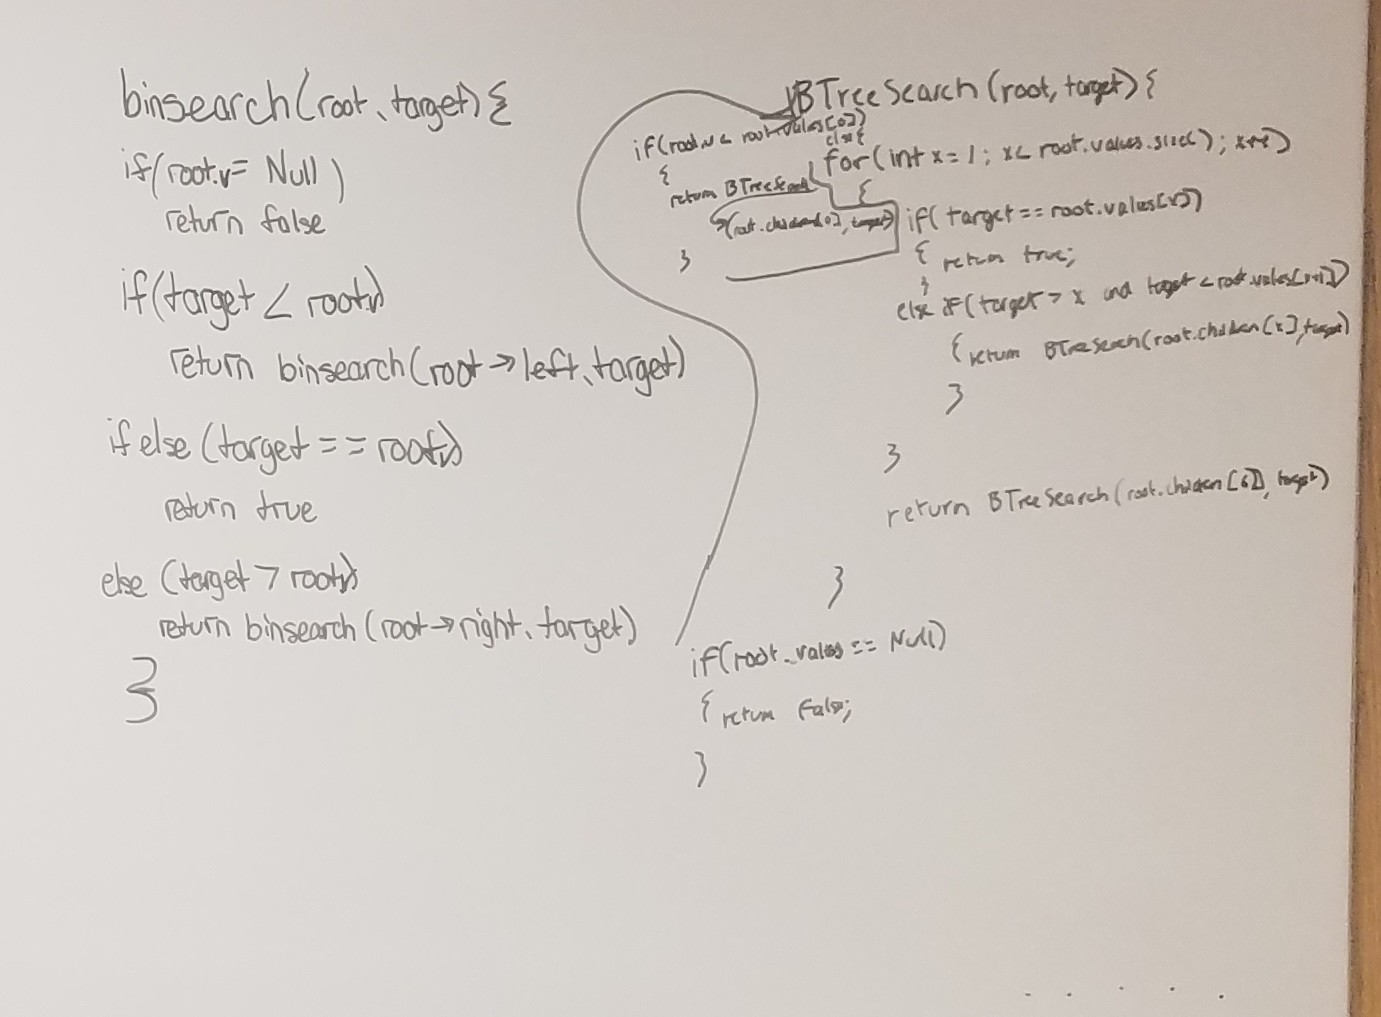 binsearch(root, target) {
if(root.v= Null)
return false
if(target < root.v)
return binsearch(root→left, target)
if else (target == root.v)
return true
else (target > root.v)
return binsearch (root→right, target)
}
BTreeSearch (root, target) {
if(root.v < root.values[0])
{
return BTreeSearch
(root.children[0], target)
}
else{
for(int x=1; x< root.values.size(); x++)
{
if(target==root.values[x])
{ return true;
}
else if(target > x and target < root.values[x+1])
{return BTreeSearch(root.children[x], target)
}
}
return BTreeSearch(root.children[6], target)
}
if(root.values == Null)
{ return false;
}